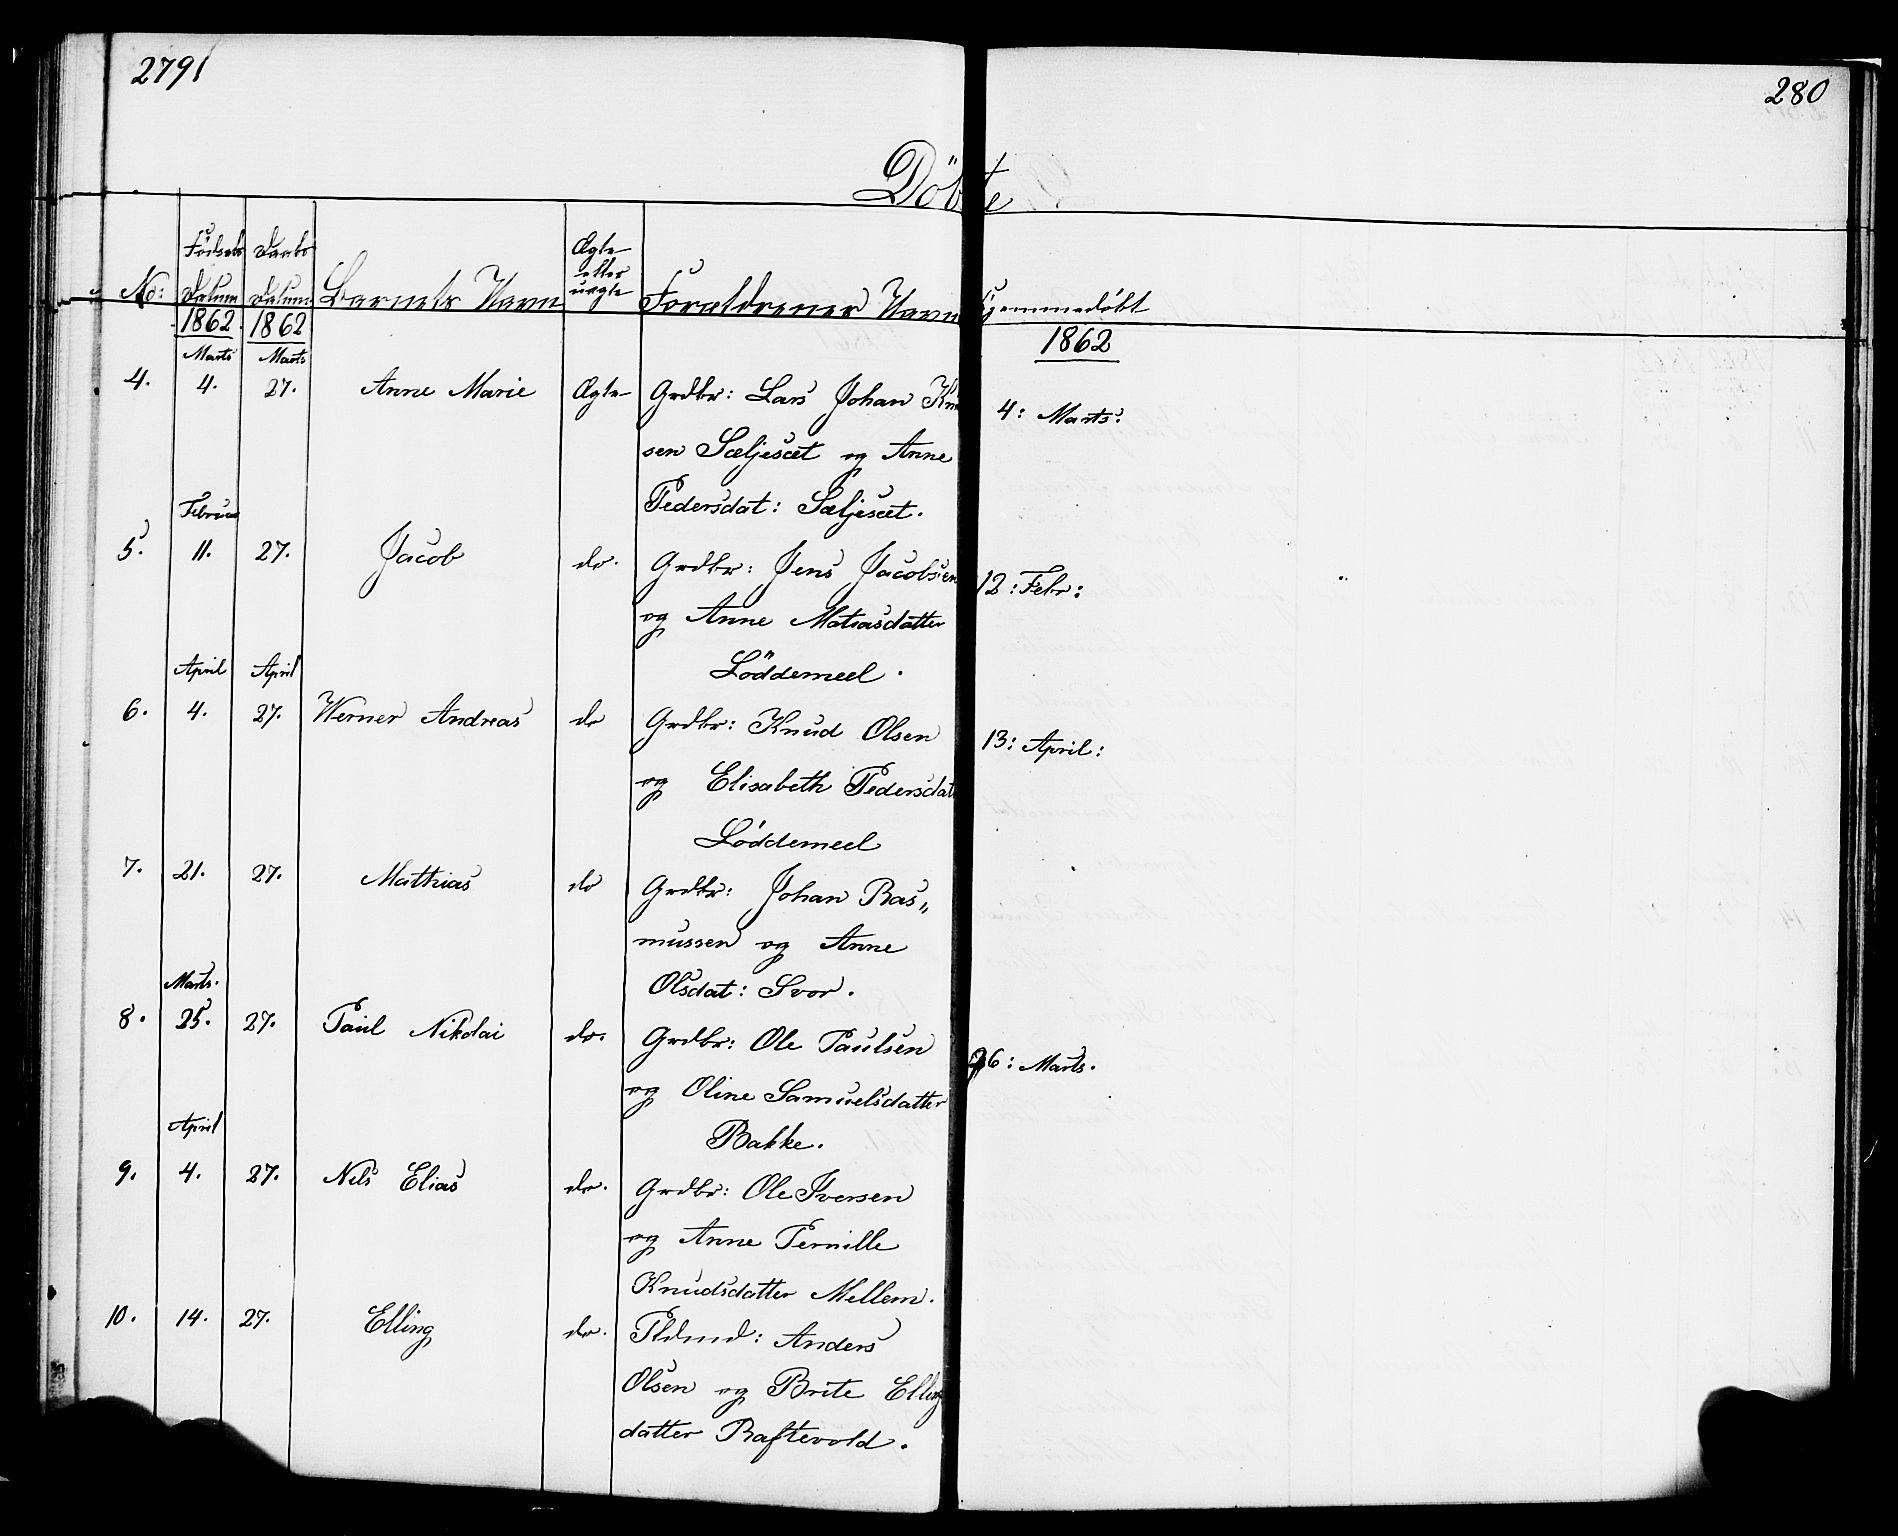 279
280
Döbte
No: Födsels Datum Daabs Datum Barnets Navn Ægte eller uægte Forældrenes Navn Hjemmedöbt
1862 1862 1862
Marts Marts
4. 4. 27. Anne Marie Ægte Grdbr: Lars Johan Knu 4: Marts:
sen Sæljesæt og Anne
Pedersdat: Sæljesæt.
Februar
5. 11. 27. Jacob do. Grdbr: Jens Jacobsen 12: Febr:
og Anne Matiasdatter
Löddemeel.
April April
6. 4. 27. Werner Andreas do Grdbr: Knud Olsen 13: April:
og Elisabeth Pedersdat
Löddemeel
7. 21. 27. Mathias do Grdbr: Johan Ras„
mussen og Anne
Olsdat: Svor.
Marts.
8. 25. 27. Paul Nikolai do. Grdbr: Ole Paulsen 26: Marts.
og Oline Samuelsdatter
Bakke.
April
9. 4. 27. Nils Elias do. Grdbr: Ole Iversen
og Anne Pernille
Knudsdatter Mellem.
10. 14. 27. Elling do. Pldmd: Anders
Olsen og Brite Elling
datter Raftevold.